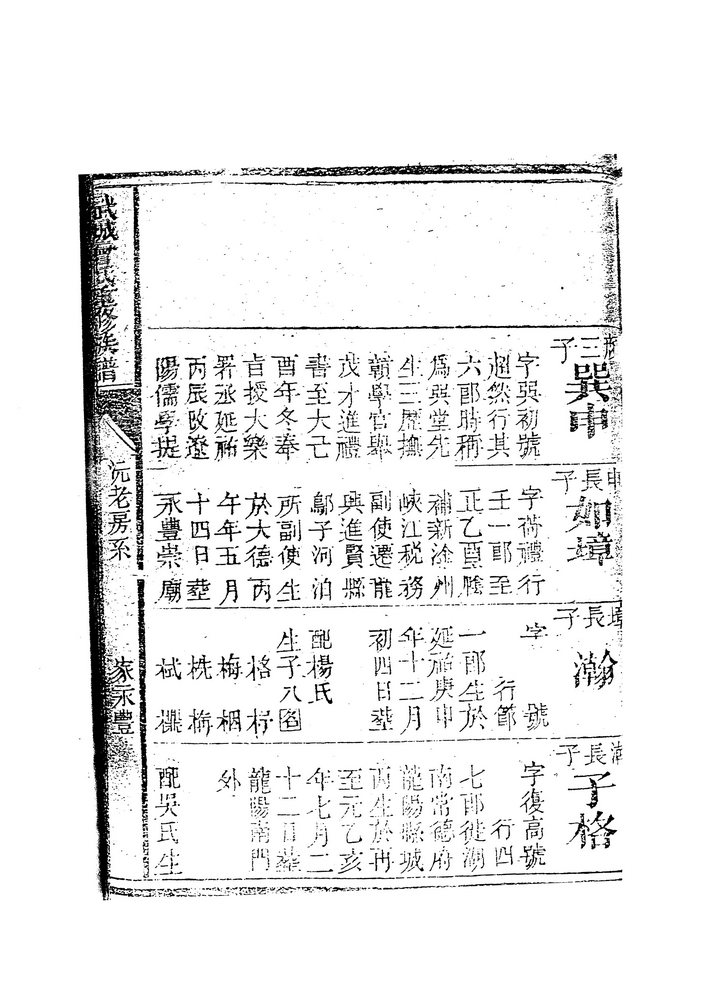 三子
巽申
字巽初號
超然行其
六郎時稱
為巽堂先
生三歷撫
贛學官舉
茂才進禮
書至大己
酉年冬奉
旨授大樂
署丞延祐
丙辰改遼
陽儒學提
申長子
如璋
字荷禮行
壬一郎至
正乙酉騰
補新淦州
峽江稅務
副使遷龍
興進賢縣
鄔子河泊
所副使生
於大德丙
午年五月
十四日塟
永豐崇廟
璋長子
瀚
字 號
行節
一郎生於
延祐庚申
年十二月
初四日塟
配楊氏
生子八
格 杍
梅 栶
桄
栻
瀚長子
子格
字復高號
行四
七郎徙湖
南常德府
龍陽縣城
丙生於
至元乙亥
年七月二
十二日塟
龍陽南門
外
配吳氏生
武城曾氏重修族譜
沅老房系
家永豐